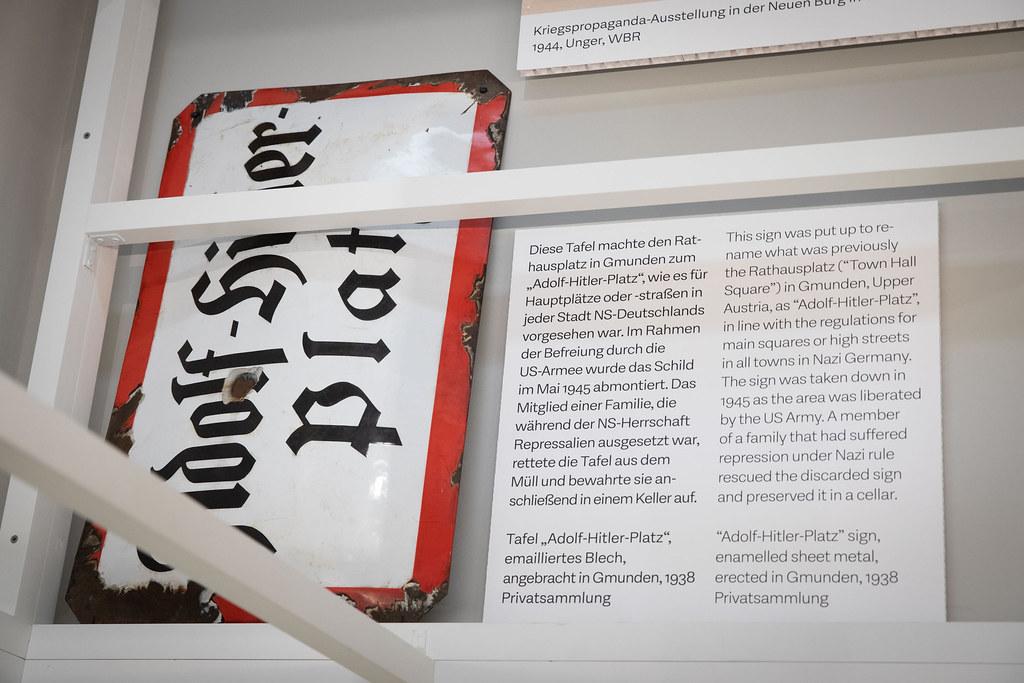 Kriegspropaganda-Ausstellung in der Neuen Burg in
1944, Unger, WBR
Adolf-Hitler-
Platz
Diese Tafel machte den Rat-
hausplatz in Gmunden zum
„Adolf-Hitler-Platz“, wie es für
Hauptplätze oder -straßen in
jeder Stadt NS-Deutschlands
vorgesehen war. Im Rahmen
der Befreiung durch die
US-Armee wurde das Schild
im Mai 1945 abmontiert. Das
Mitglied einer Familie, die
während der NS-Herrschaft
Repressalien ausgesetzt war,
rettete die Tafel aus dem
Müll und bewahrte sie an-
schließend in einem Keller auf.
Tafel „Adolf-Hitler-Platz“,
emailliertes Blech,
angebracht in Gmunden, 1938
Privatsammlung
This sign was put up to re-
name what was previously
the Rathausplatz (“Town Hall
Square”) in Gmunden, Upper
Austria, as “Adolf-Hitler-Platz”,
in line with the regulations for
main squares or high streets
in all towns in Nazi Germany.
The sign was taken down in
1945 as the area was liberated
by the US Army. A member
of a family that had suffered
repression under Nazi rule
rescued the discarded sign
and preserved it in a cellar.
“Adolf-Hitler-Platz” sign,
enamelled sheet metal,
erected in Gmunden, 1938
Privatsammlung